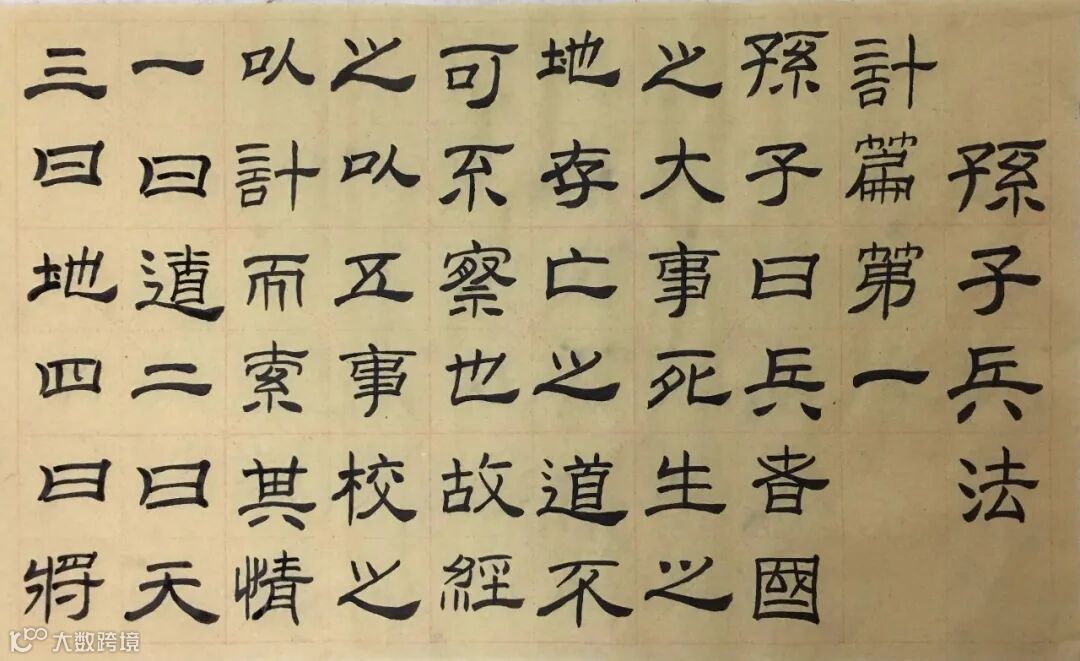 孫子兵法
計篇第一
孫子曰兵者國
之大事死生之
地存亡之道不
可不察也故經
之以五事校之
以計而索其情
一曰道二曰天
三曰地四曰將
大数跨境